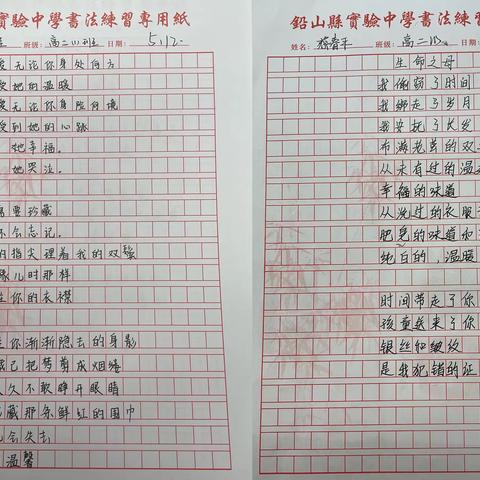 實驗中學書法練習專用紙
班级: 高二 日期: 5.12.
爱无论你身处何方
她的温暖
爱无论你身陷何境
受到她的心跳
她幸福。
她哭泣。
要珍藏
不会忘记。
的指尖理着我的双鬓
像儿时那样
你的衣襟
你渐渐隐去的身影
己把梦剪成烟缕
久久不敢睁开眼睛
藏那条鲜红的围巾
会失去
温馨
鉛山縣實驗中學書法練習
姓名: 班级: 高二
生命之母
我偷窃了时间
我绑走了岁月
我安抚了长发
布满老茧的双
从未有过的温
幸福的味道
从洗过的衣服
肥皂的味道和
纯白的,温暖
时间带走了你
孩童送来了你
银丝和皱纹
是我犯错的证